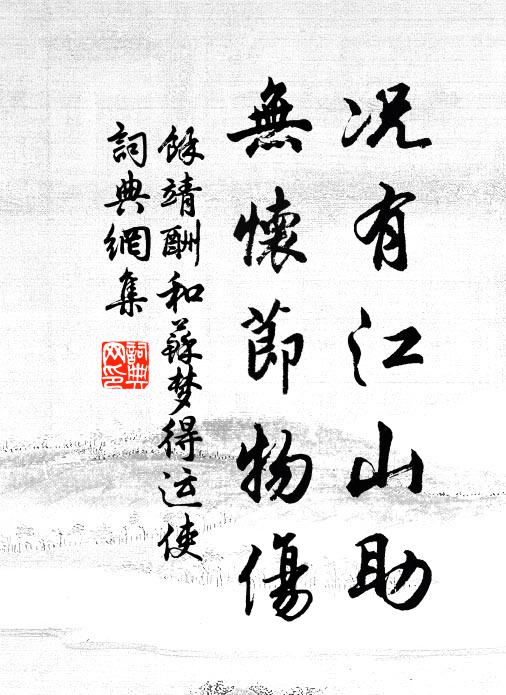 况有江山助
無懷節物傷
餘靖酬和蘇梦得运使
詞典網集
詞典网印